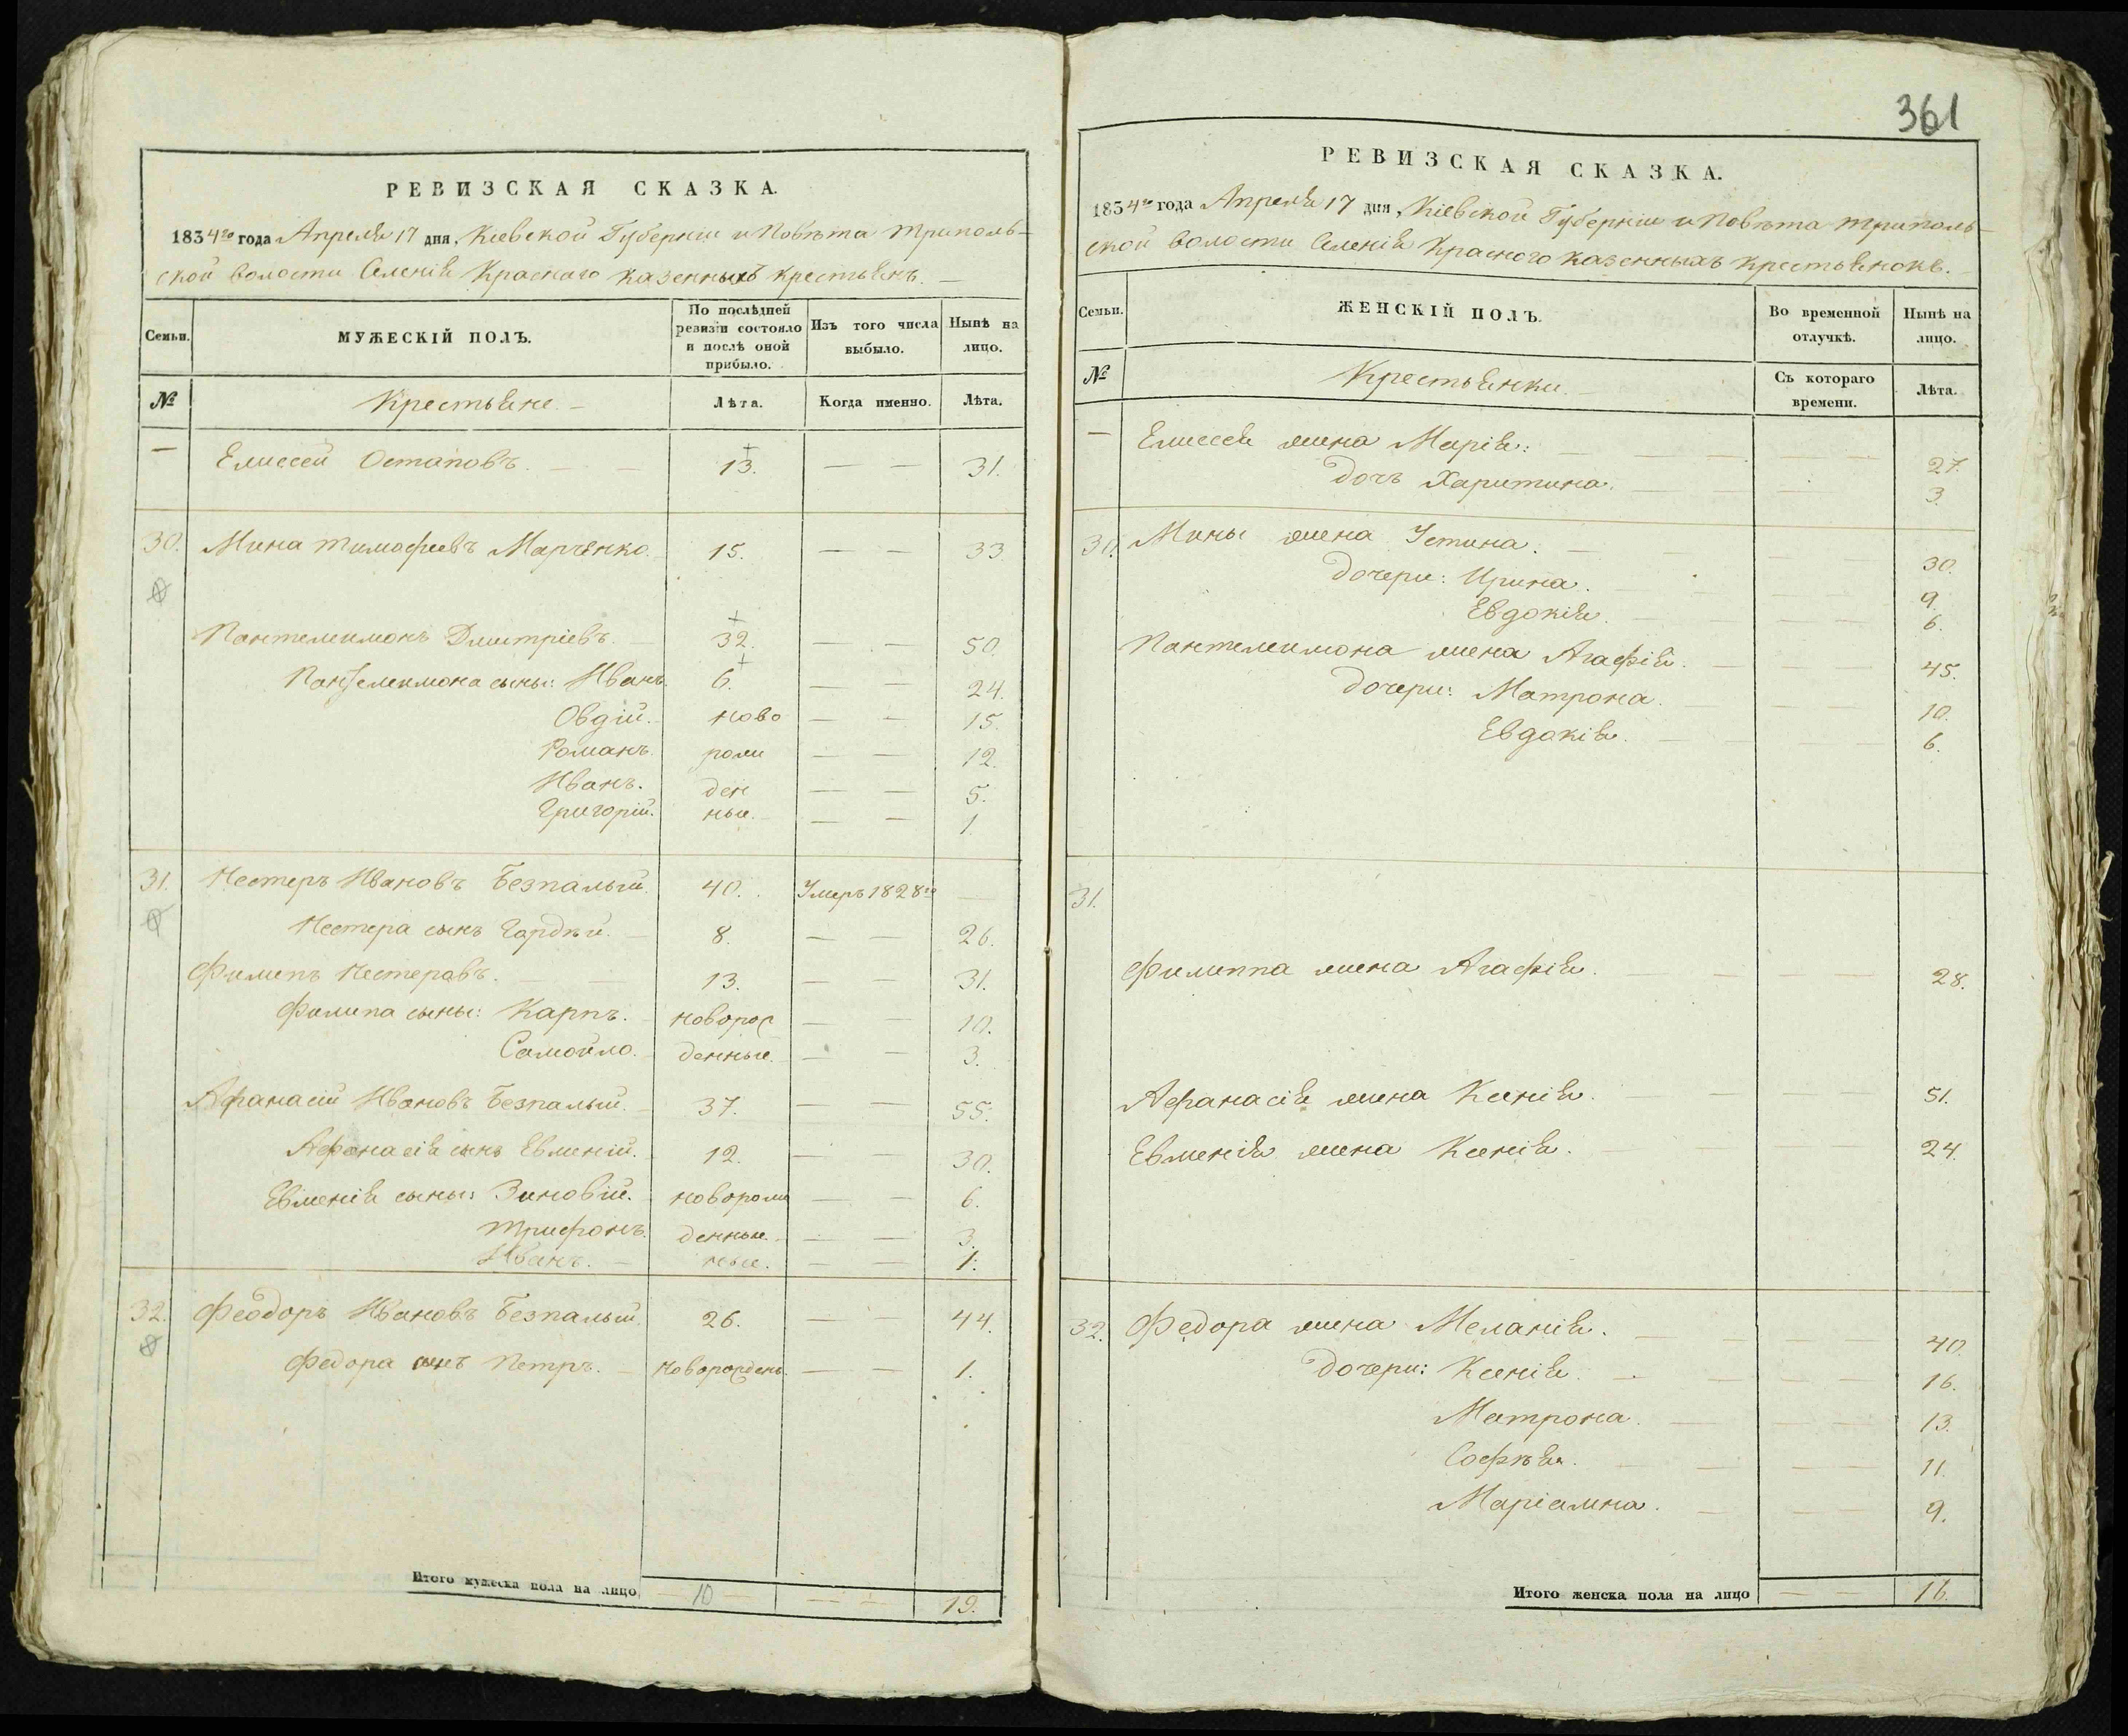 РЕВИЗСКАЯ СКАЗКА.
1834го года Апреля 17 дня, Кіевской Губерніи и Повѣта Триполь-
ской волости Селенія Краснаго казенныхъ крестьянъ.
Семьи. МУЖЕСКІЙ ПОЛЪ. По послѣдней ревизіи состояло и послѣ оной прибыло. Изъ того числа выбыло. Нынѣ на лицо.
№ Крестьяне Лѣта. Когда именно. Лѣта.
— Елисей Остаповъ. 13. — — 31.
30. Мина Тимофеевъ Марченко. 15. — — 33
Пантелеимонъ Дмитріевъ. 32. — — 50.
Пантелеимона сыны: Иванъ. 6. — — 24.
Овдій. ново — — 15.
Романъ. рож — — 12.
Иванъ. ден — — 5.
Григорій. ные. — — 1.
31. Нестеръ Ивановъ Безпалый. 40. Умеръ 1828го —
Нестера сынъ Гордѣй. 8. — — 26.
Филипъ Нестеровъ. 13. — — 31.
Филипа сыны: Карпъ. новорож — — 10.
Самойло. денные. — — 3.
Афанасій Ивановъ Безпалый. 37. — — 55.
Афонасія сынъ Евменій. 12. — — 30.
Евменія сыны: Зиновій.новорож — — 6.
Трифонъ. денные. — — 3.
Иванъ. ные. — — 1.
32. Феодоръ Ивановъ Безпалый. 26. — — 44.
Федора сынъ Петръ. новорожденъ. — — 1.
Итого мужеска пола на лицо 10 — — 19.
361
РЕВИЗСКАЯ СКАЗКА.
1834го года Апреля 17 дня, Кіевской Губерніи и Повѣта Триполь-
ской волости Селенія Красного казенныхъ крестьянокъ.
Семьи. ЖЕНСКІЙ ПОЛЪ. Во временной отлучкѣ. Нынѣ на лицо.
№ Крестьянки Съ котораго времени. Лѣта.
— Елисея жена Марія: 27.
дочь Харитина. 3.
30. Мины жена Устина. 30.
дочери: Ирина. 9.
Евдокія. 6.
Пантелеимона жена Агафія. 45.
дочери: Матрона. 10.
Евдокія. 6.
31.
Филиппа жена Агафія. 28.
Афанасія жена Ксенія. 51.
Евменія жена Ксенія. 24.
32. Федора жена Меланія. 40.
дочери: Ксенія. 16.
Матрона. 13.
Софѣя. 11.
Маріамна. 9.
Итого женска пола на лицо — — 16.